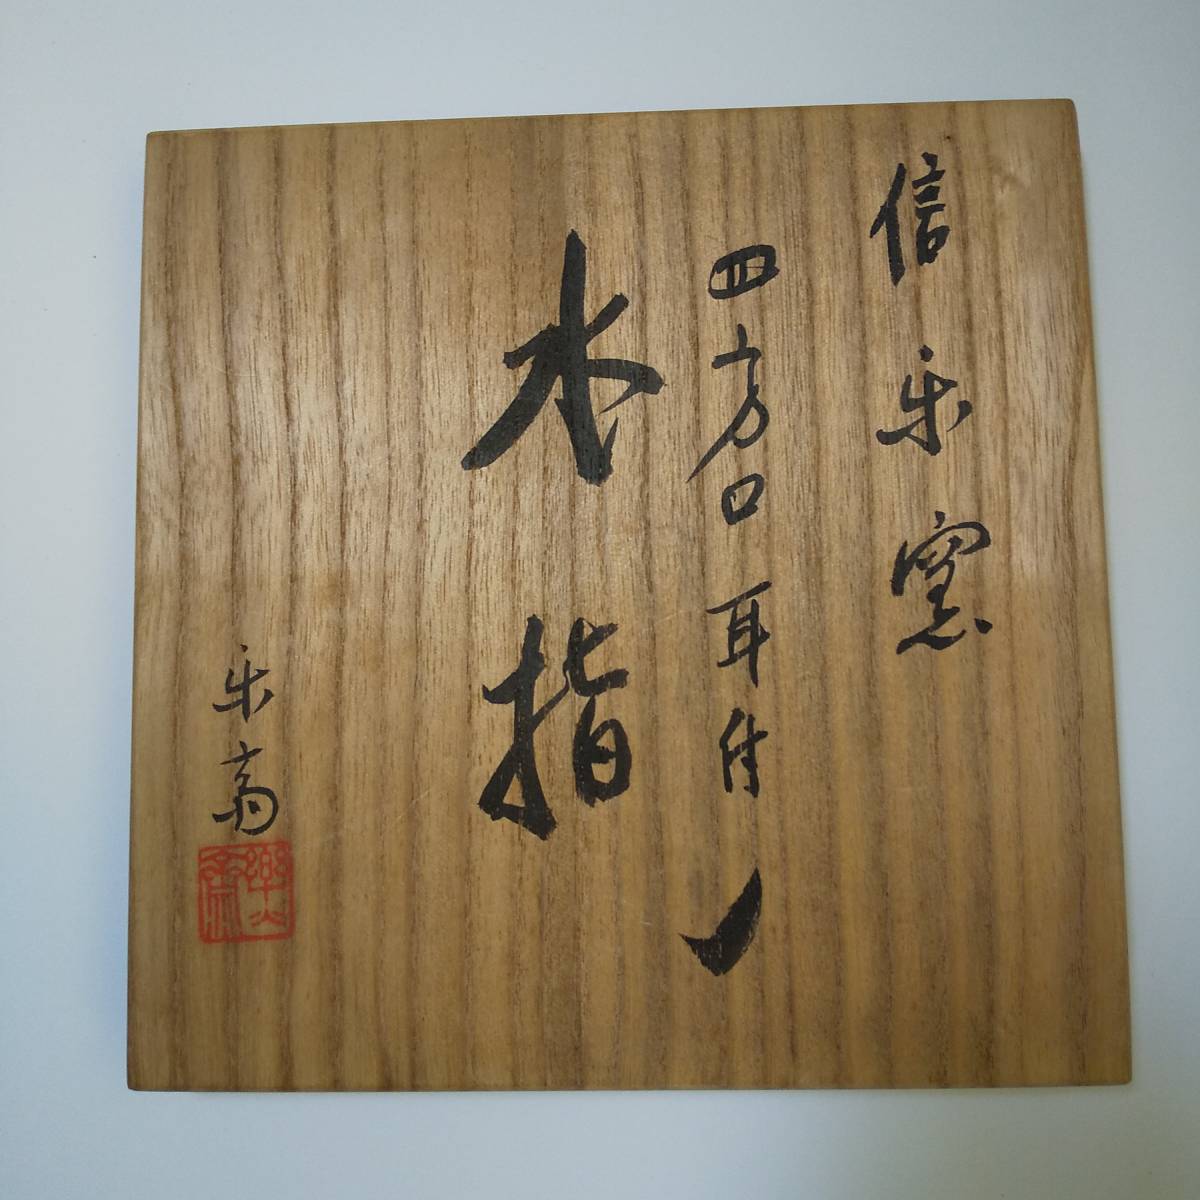 信楽窯
四方口耳付ノ
水指
楽斎
樂斎